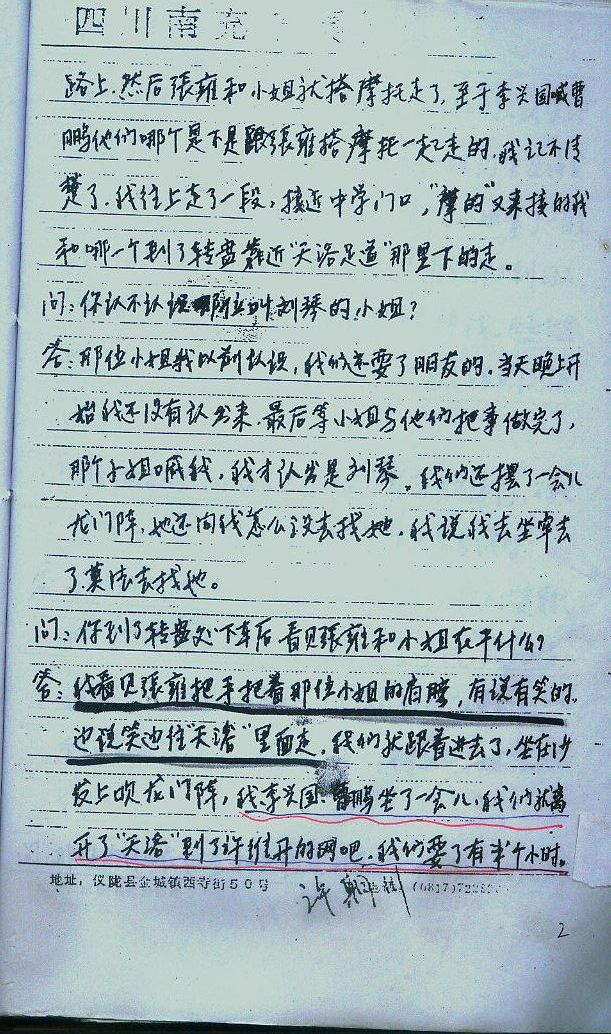 四川南充
路上,然后张雍和小姐就搭摩托走了,至于李兴国喊曹
鹏他们哪个是不是跟张雍搭摩托一起走的,我记不清
楚了,我往上走了一段,接近中学门口,"摩的"又来接的我
和哪一个到了转盘靠近"天洛足道"那里下的走。
问:你认不认识那位叫刘琴的小姐?
答:那位小姐我以前认识,我们还耍了朋友的,当天晚上开
始我还没有认出来,最后等小姐与他们把事做完了,
那个小姐喊我,我才认出是刘琴。我们还摆了一会儿
龙门阵,她还问我怎么没去找她,我说我去坐牢去
了莫法去找她。
问:你到了转盘处下车后看见张雍和小姐在干什么?
答:我看见张雍把手把着那位小姐的肩膀,有说有笑的,
边说笑边往"天洛"里面走,我们就跟着进去了,坐在沙
发上吹龙门阵,我李兴国、曹鹏坐了一会儿,我们就离
开了"天洛"到了许维开的网吧,我们耍了有半个小时。
地址:仪陇县金城镇西寺街50号 (0817)722
许
2